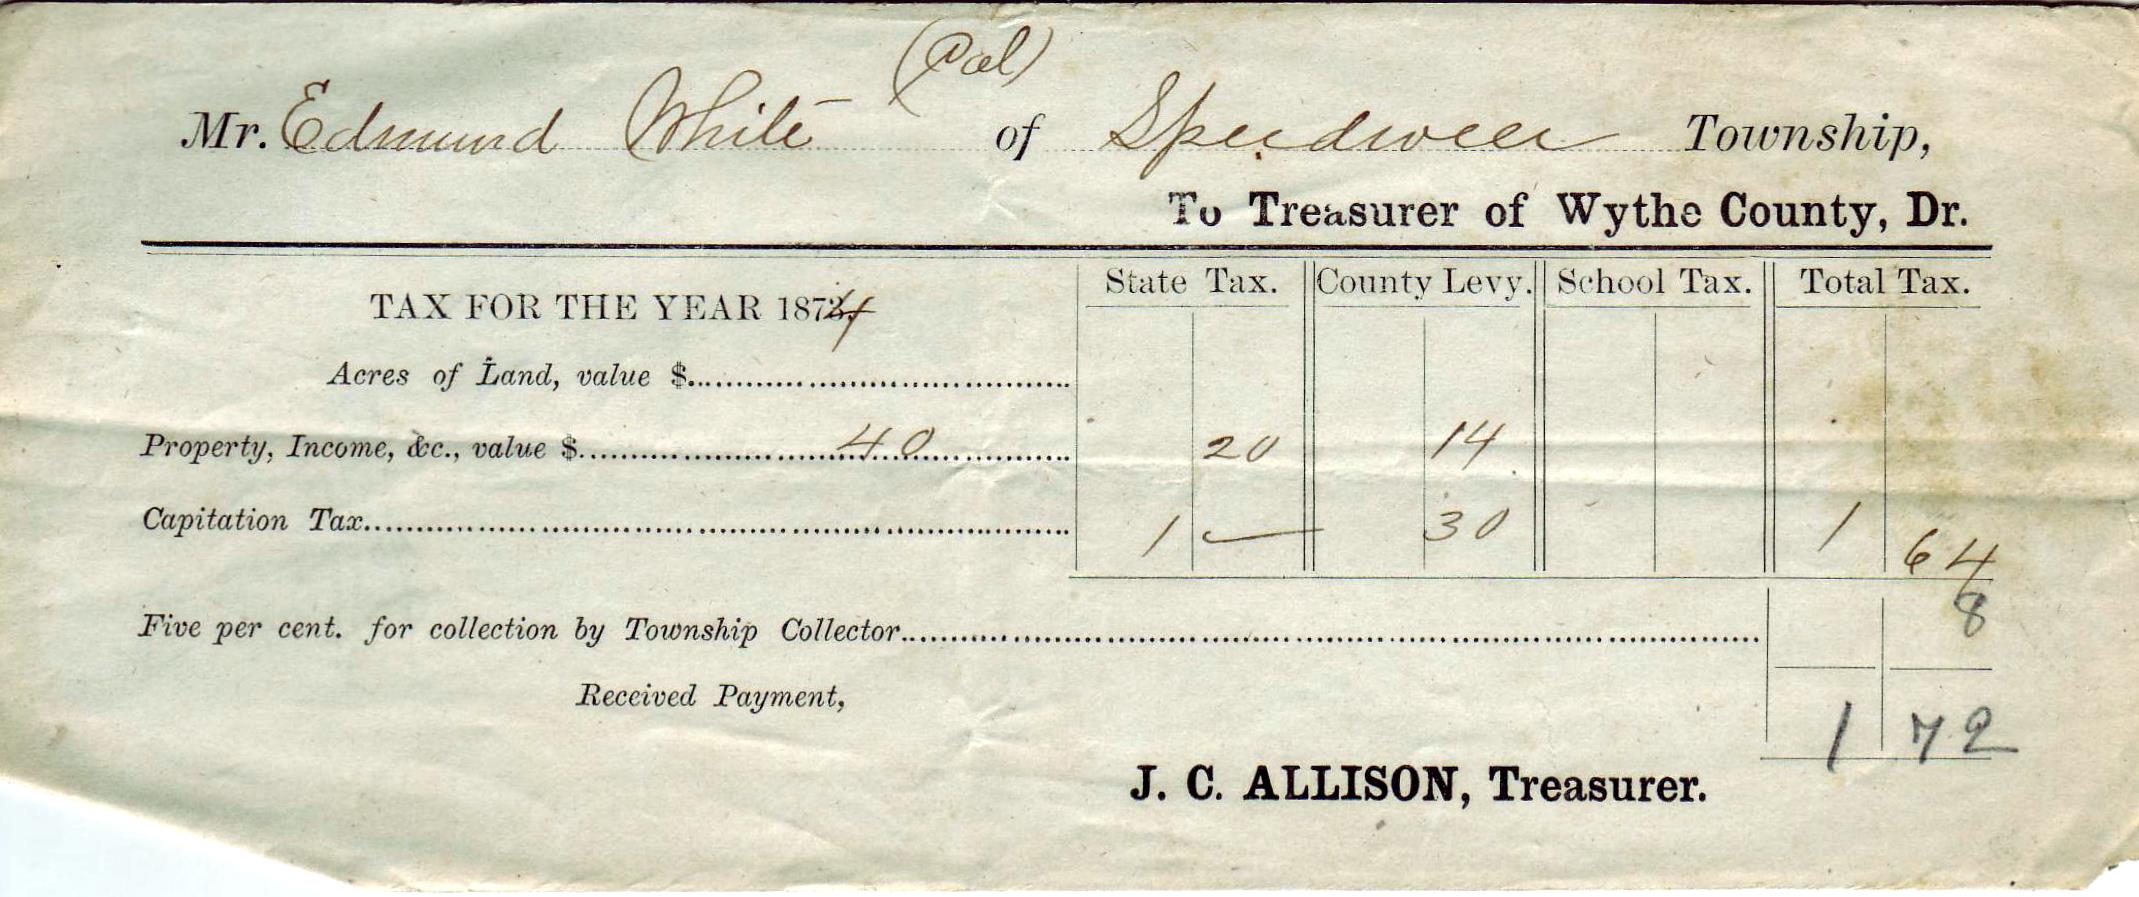 (Col)
Mr. Edmund White of Speedwell Township,
To Treasurer of Wythe County, Dr.
TAX FOR THE YEAR 1874
State Tax. County Levy. School Tax. Total Tax.
Acres of Land, value $
Property, Income, &c., value $ 40 20 14
Capitation Tax 1 — 30 1 64
Five per cent. for collection by Township Collector 8
Received Payment,
1 72
J. C. ALLISON, Treasurer.